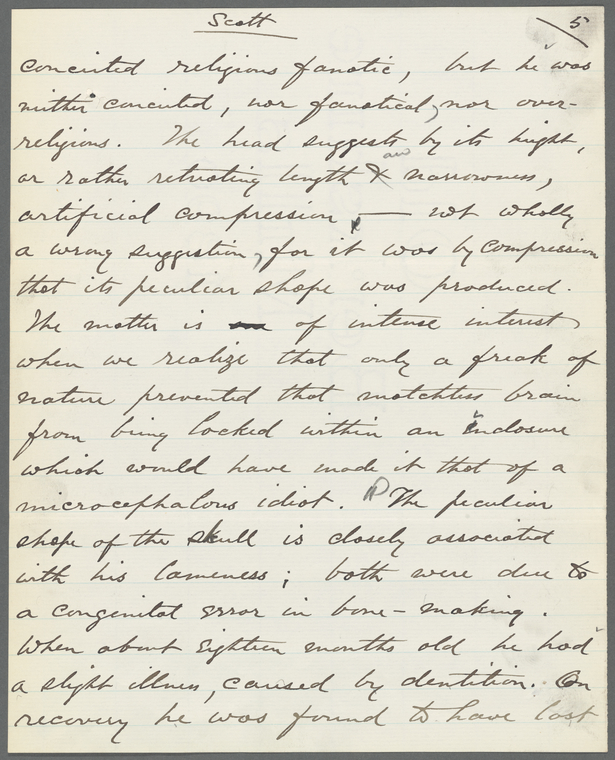 Scott
5
conceited religious fanatic, but he was
neither conceited, nor fanatical, nor over-
religious. The head suggests by its height,
or rather retreating length & and narrowness,
artificial compression, — not wholly
a wrong suggestion, for it was by compression
that its peculiar shape was produced.
The matter is of intense interest
when we realize that only a freak of
nature prevented that matchless brain
from being locked within an inclosure
which would have made it that of a
microcephalous idiot. ¶ The peculiar
shape of the skull is closely associated
with his lameness; both were due to
a congenital error in bone-making.
When about eighteen months old he had
a slight illness, caused by dentition. On
recovery he was found to have lost